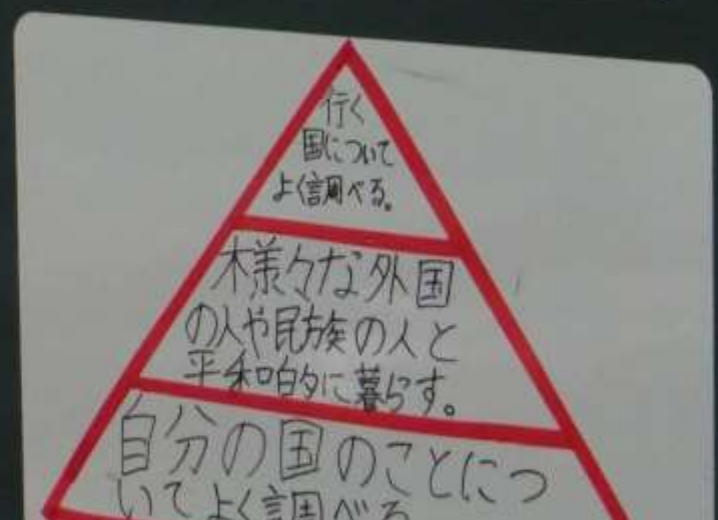 行く
国について
よく調べる。
様々な外国
の人や民族の人と
平和的に暮らす。
自分の国のことにつ
いてよく調べる